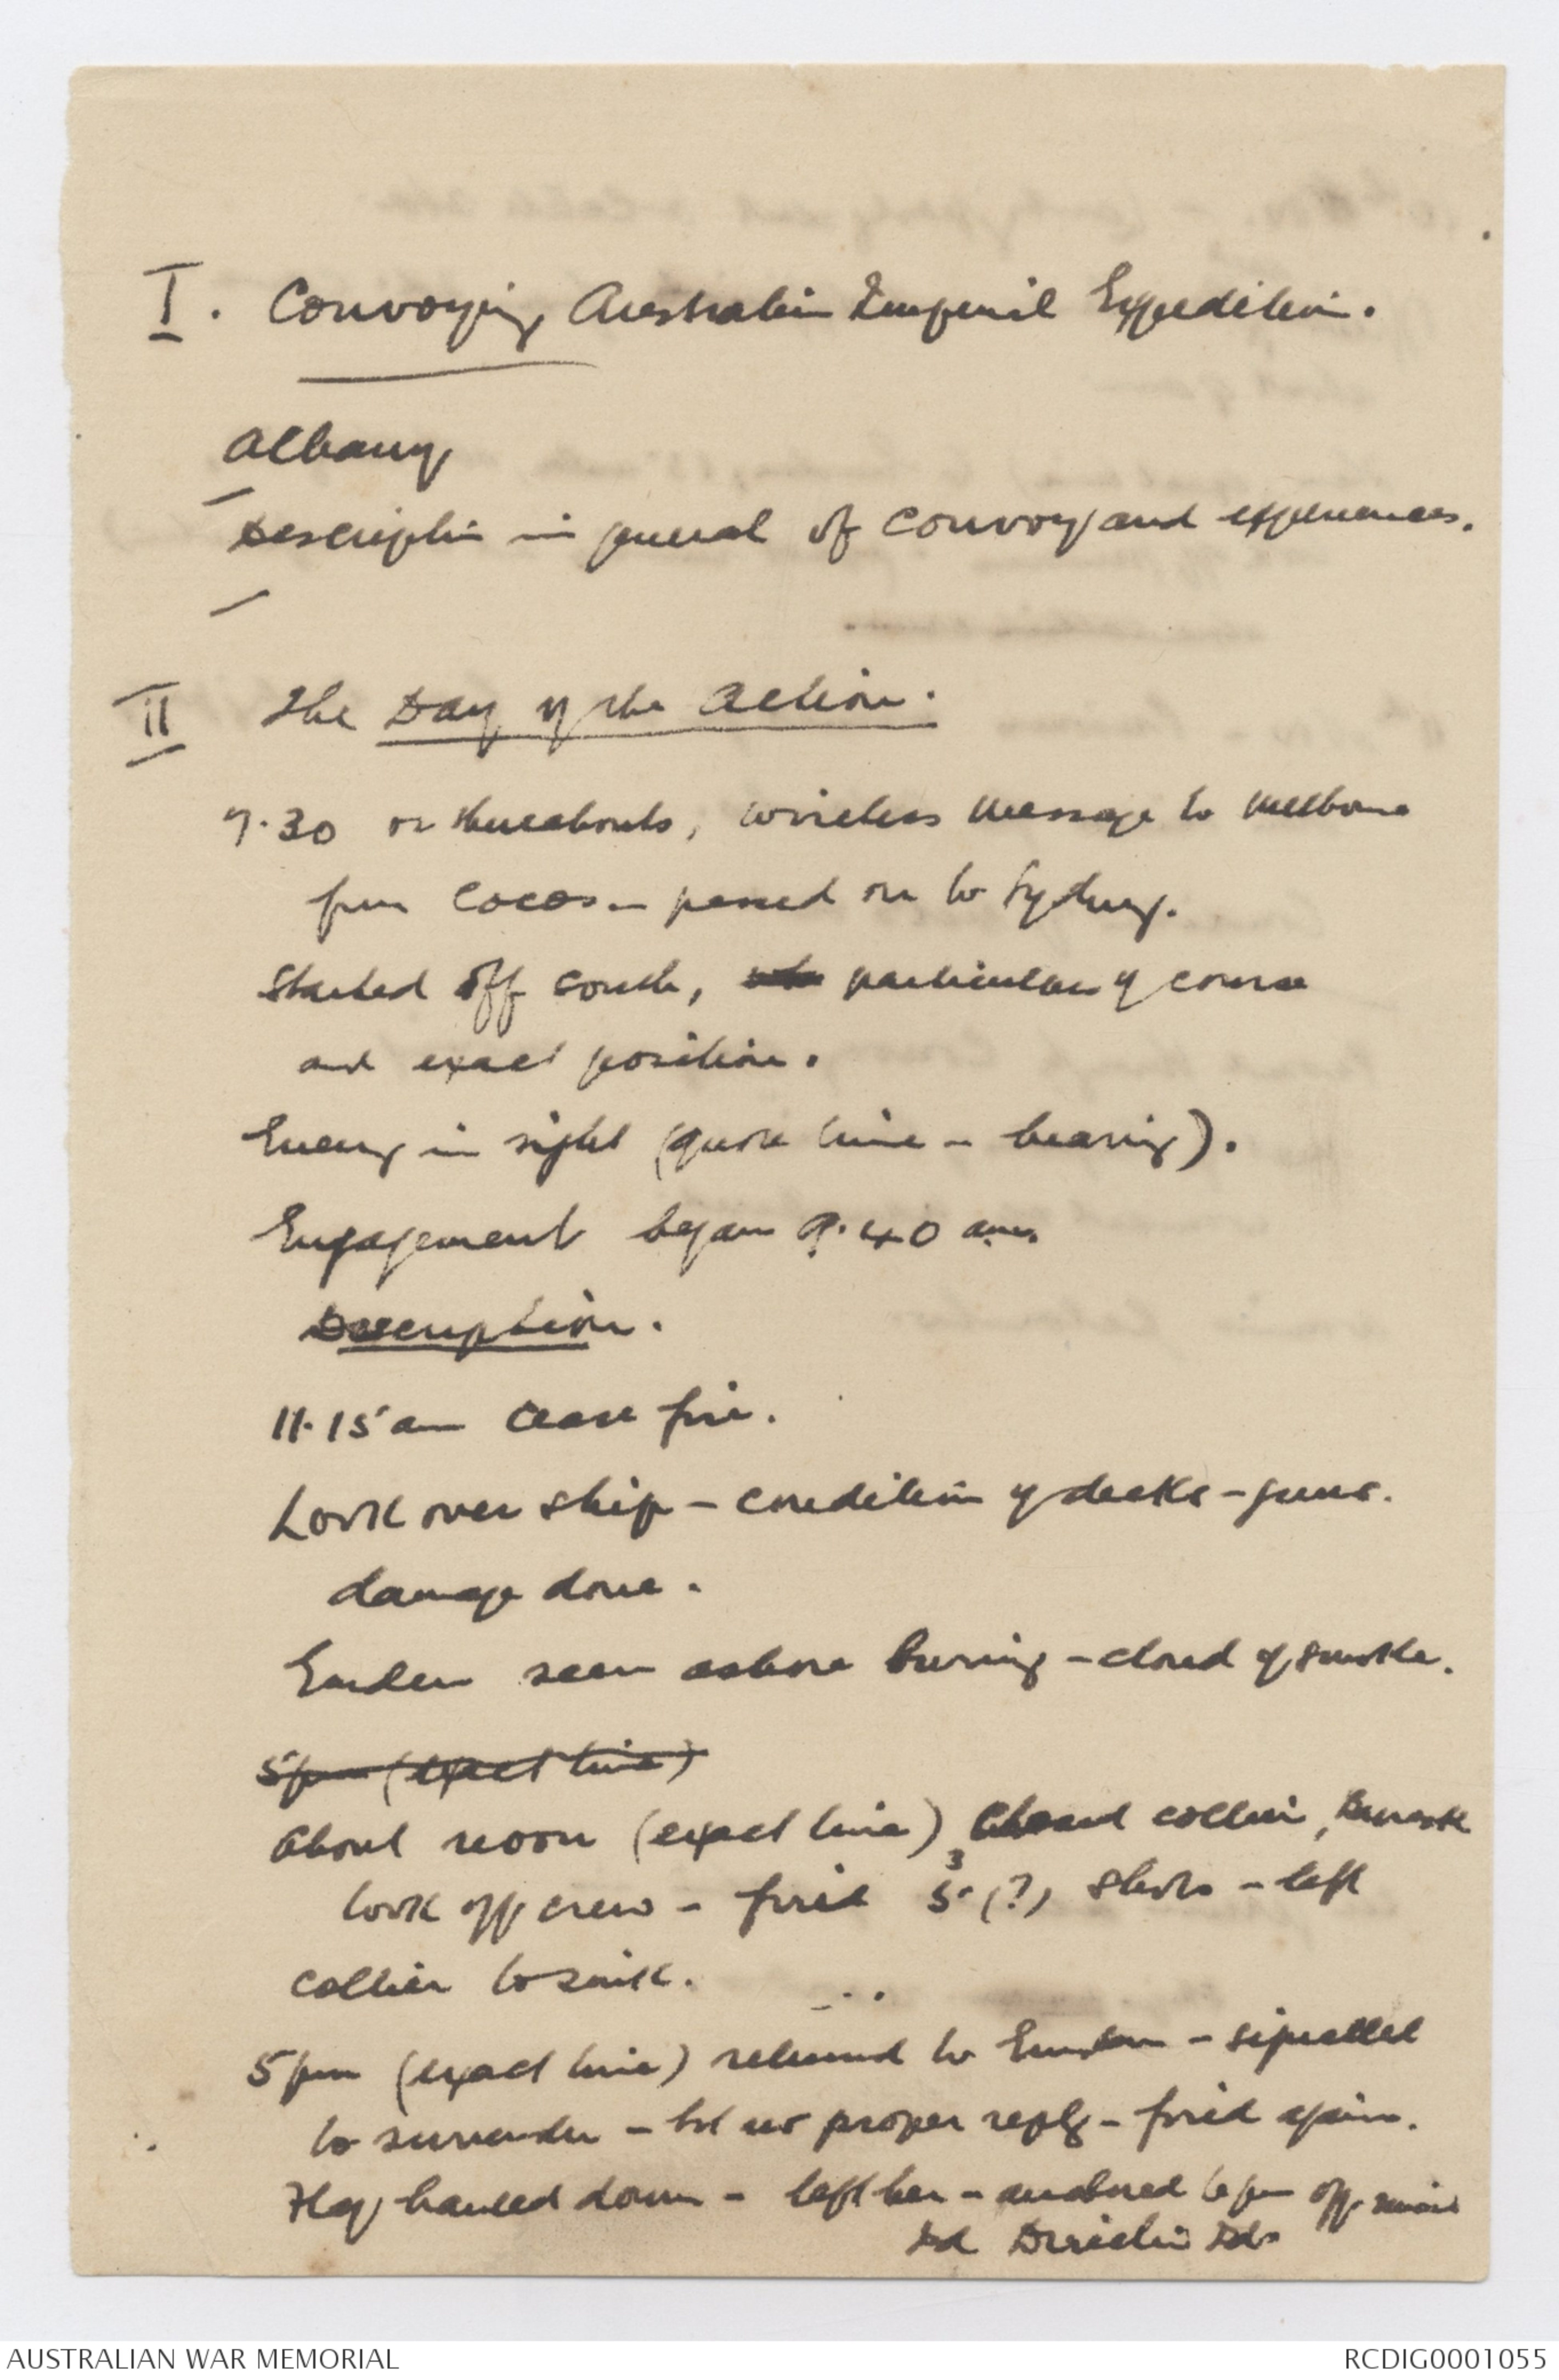 I. Convoying Australian Imperial Expedition.
Albany
Description in general of convoy and experiences.
II The Day of the Action.
7.30 or thereabouts, wireless message to Melbourne
from Cocos - passed on to Sydney.
Started off south, particulars of course
and exact position.
Enemy in sight (quote time - bearing).
Engagement began 9.40 am.
Description.
11.15 am Cease fire.
Look over ship - condition of decks - guns.
damage done.
Emden seen ashore burning - cloud of smoke.
5 pm (exact time)
About noon (exact time) collier, Buresk
3
took off crew - fired 5 (?) shots - left
collier to sink.
5 pm (exact time) returned to Emden - signalled
to surrender - got no proper reply - fired again.
Flag hauled down - left her - off main
Id Direction Ids